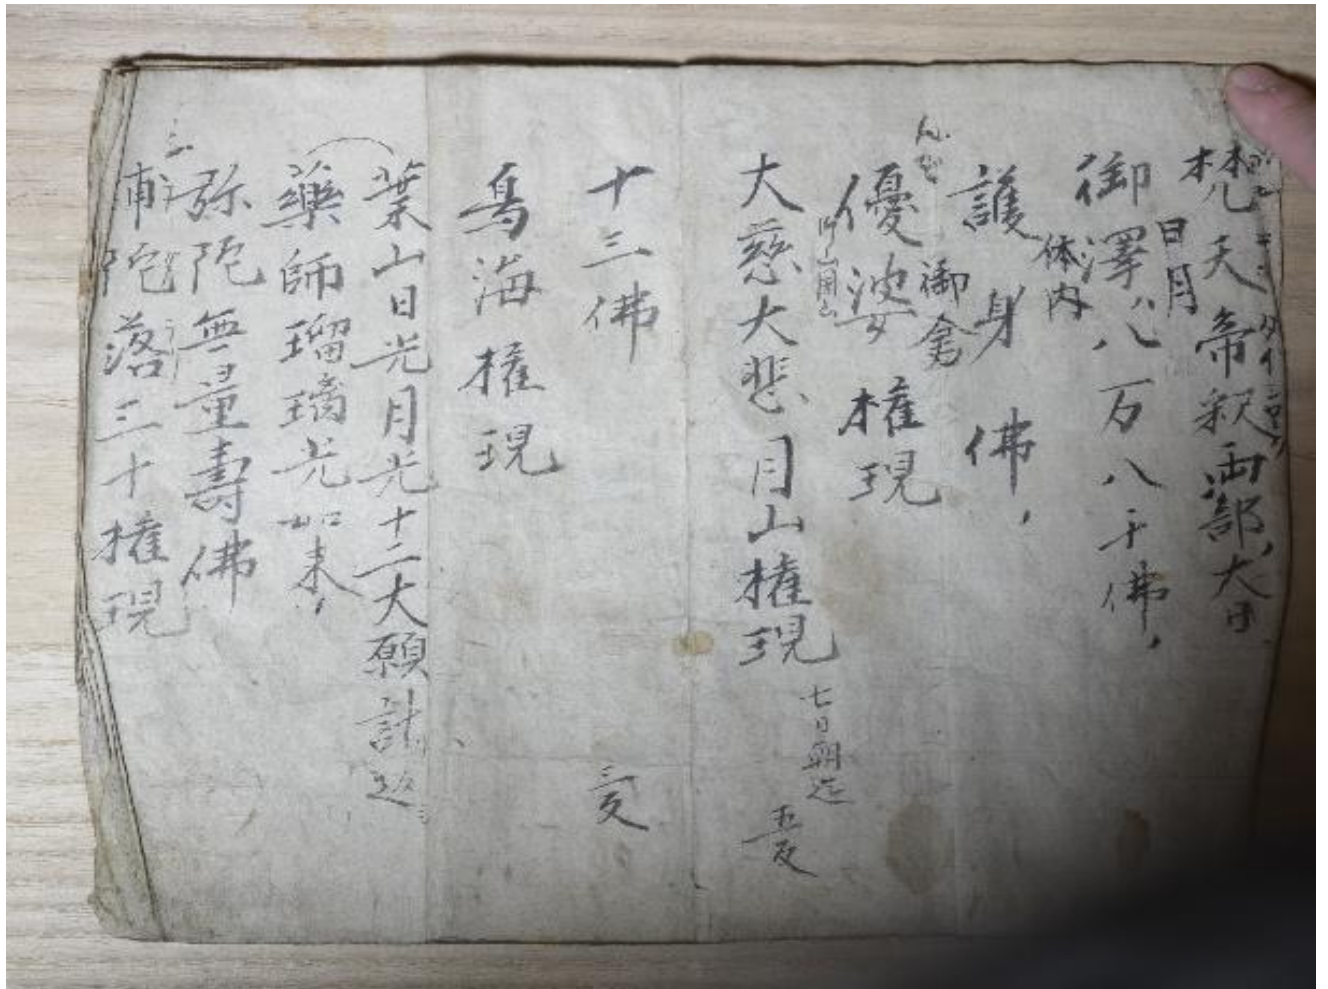 梵天帝釈両部大日
日月
御澤八万八千佛、
体内
護身佛、
御倉
優婆権現
大慈大悲月山権現
七日朝迄
五反
十三佛
三反
鳥海権現
葉山日光月光十二大願
薬師瑠璃光如来、
弥陀無量壽佛
補陀落三十権現